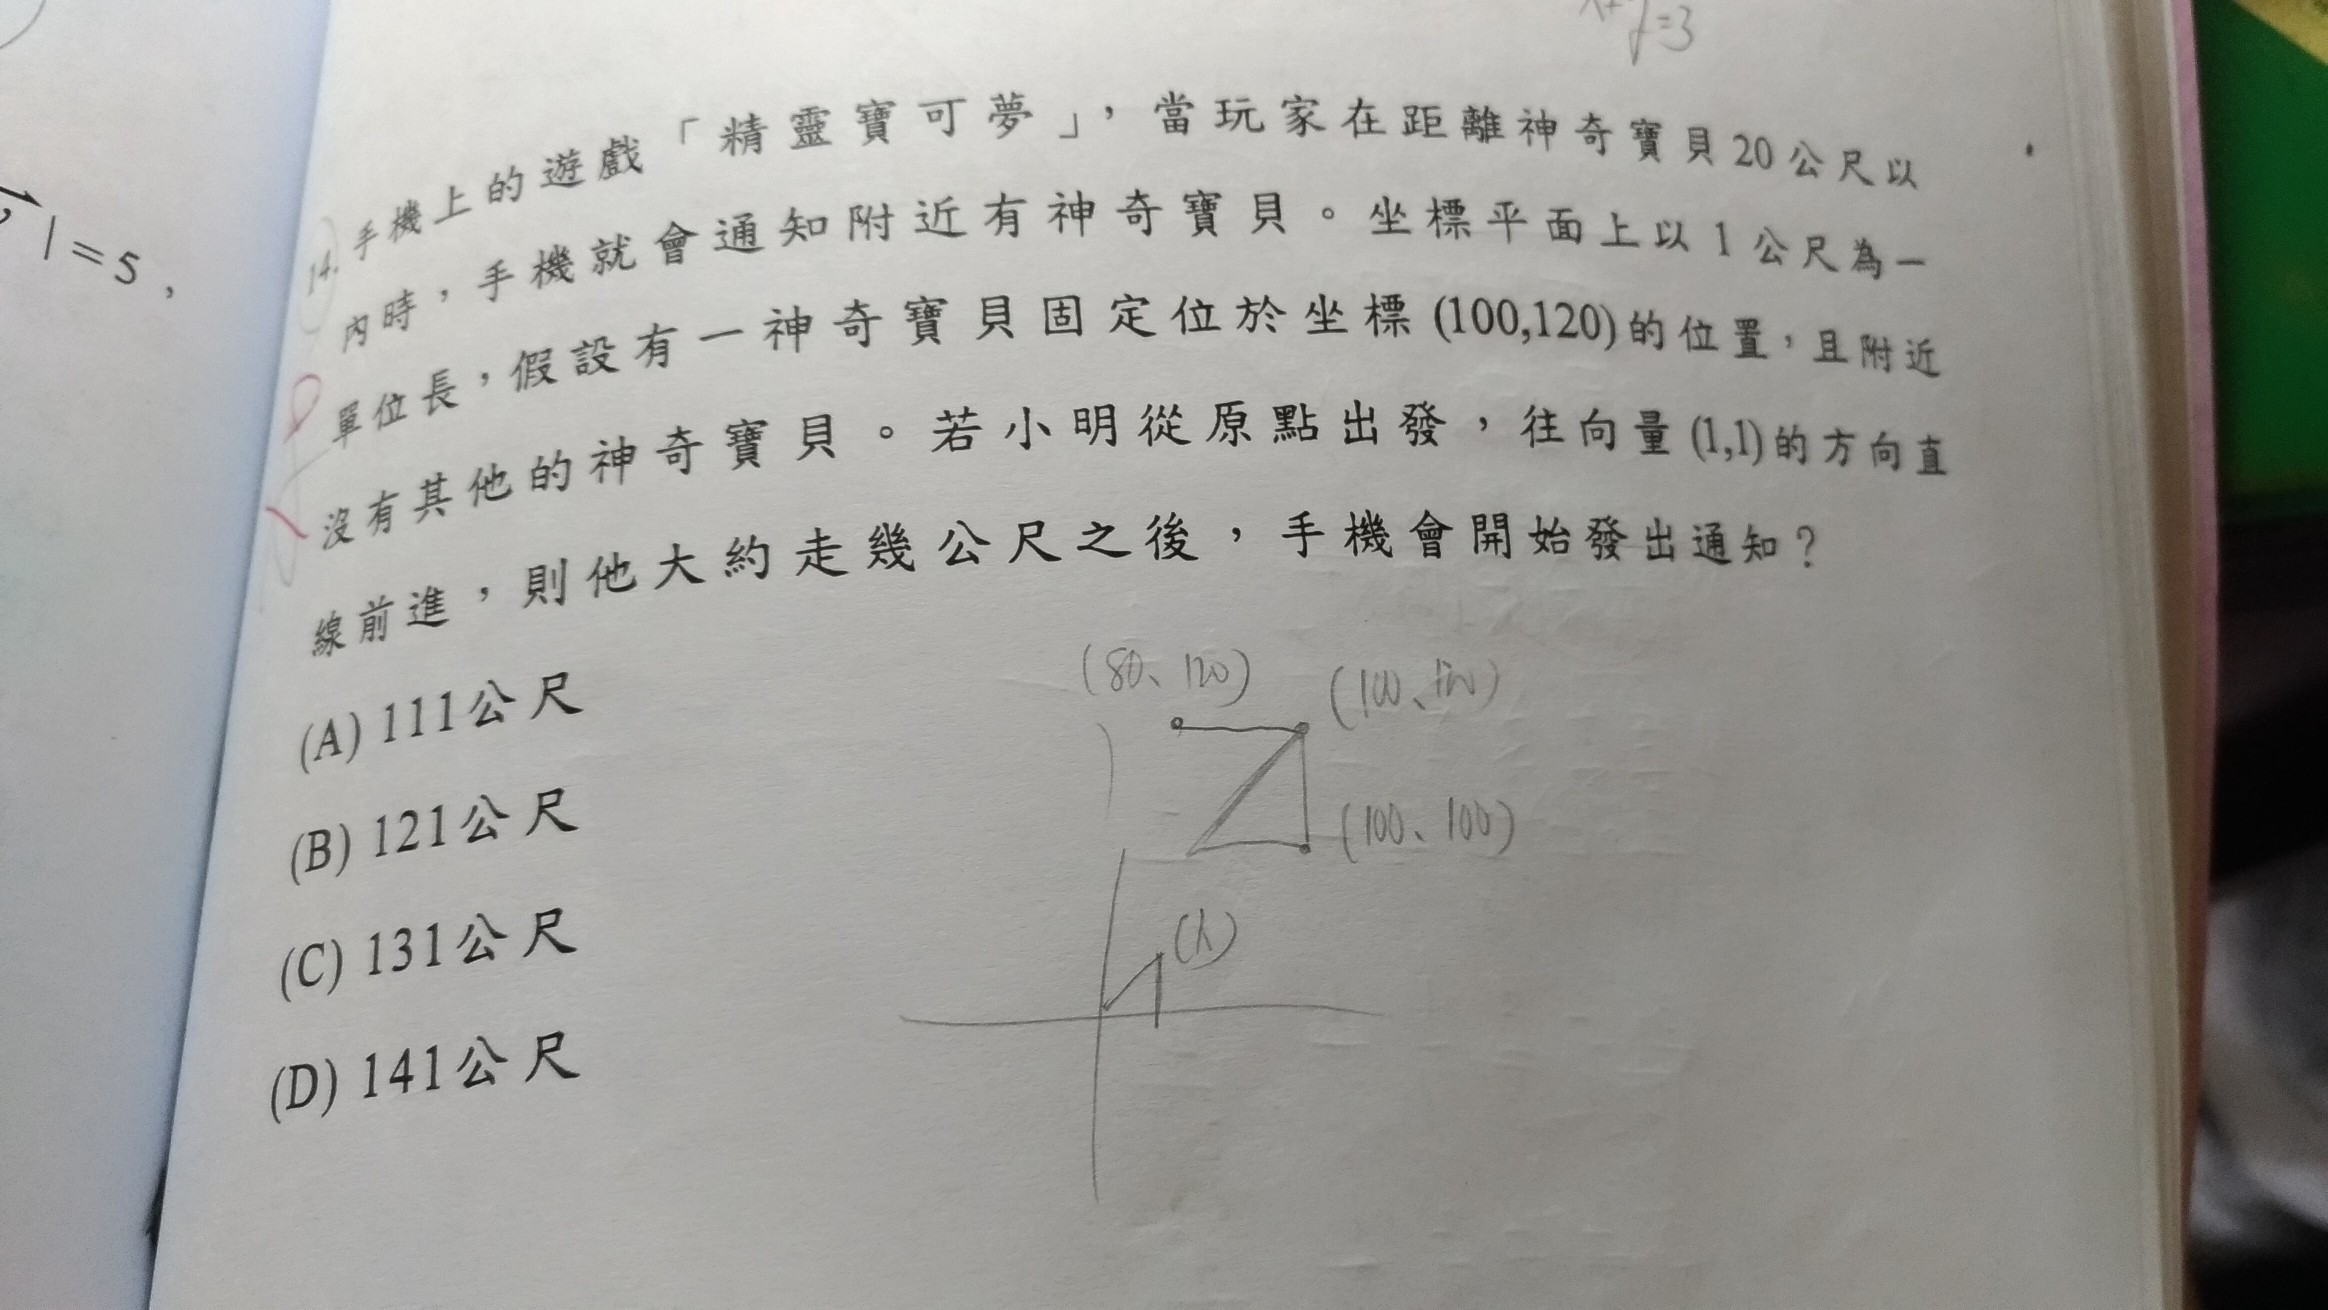 x+y=3
|=5,
14.手機上的遊戲「精靈寶可夢」,當玩家在距離神奇寶貝20公尺以
內時,手機就會通知附近有神奇寶貝。坐標平面上以1公尺為一
單位長,假設有一神奇寶貝固定位於坐標(100,120)的位置,且附近
沒有其他的神奇寶貝。若小明從原點出發,往向量(1,1)的方向直
線前進,則他大約走幾公尺之後,手機會開始發出通知?
(A) 111公尺
(B) 121公尺
(C) 131公尺
(D) 141公尺
(80、120)
(100、120)
(100、100)